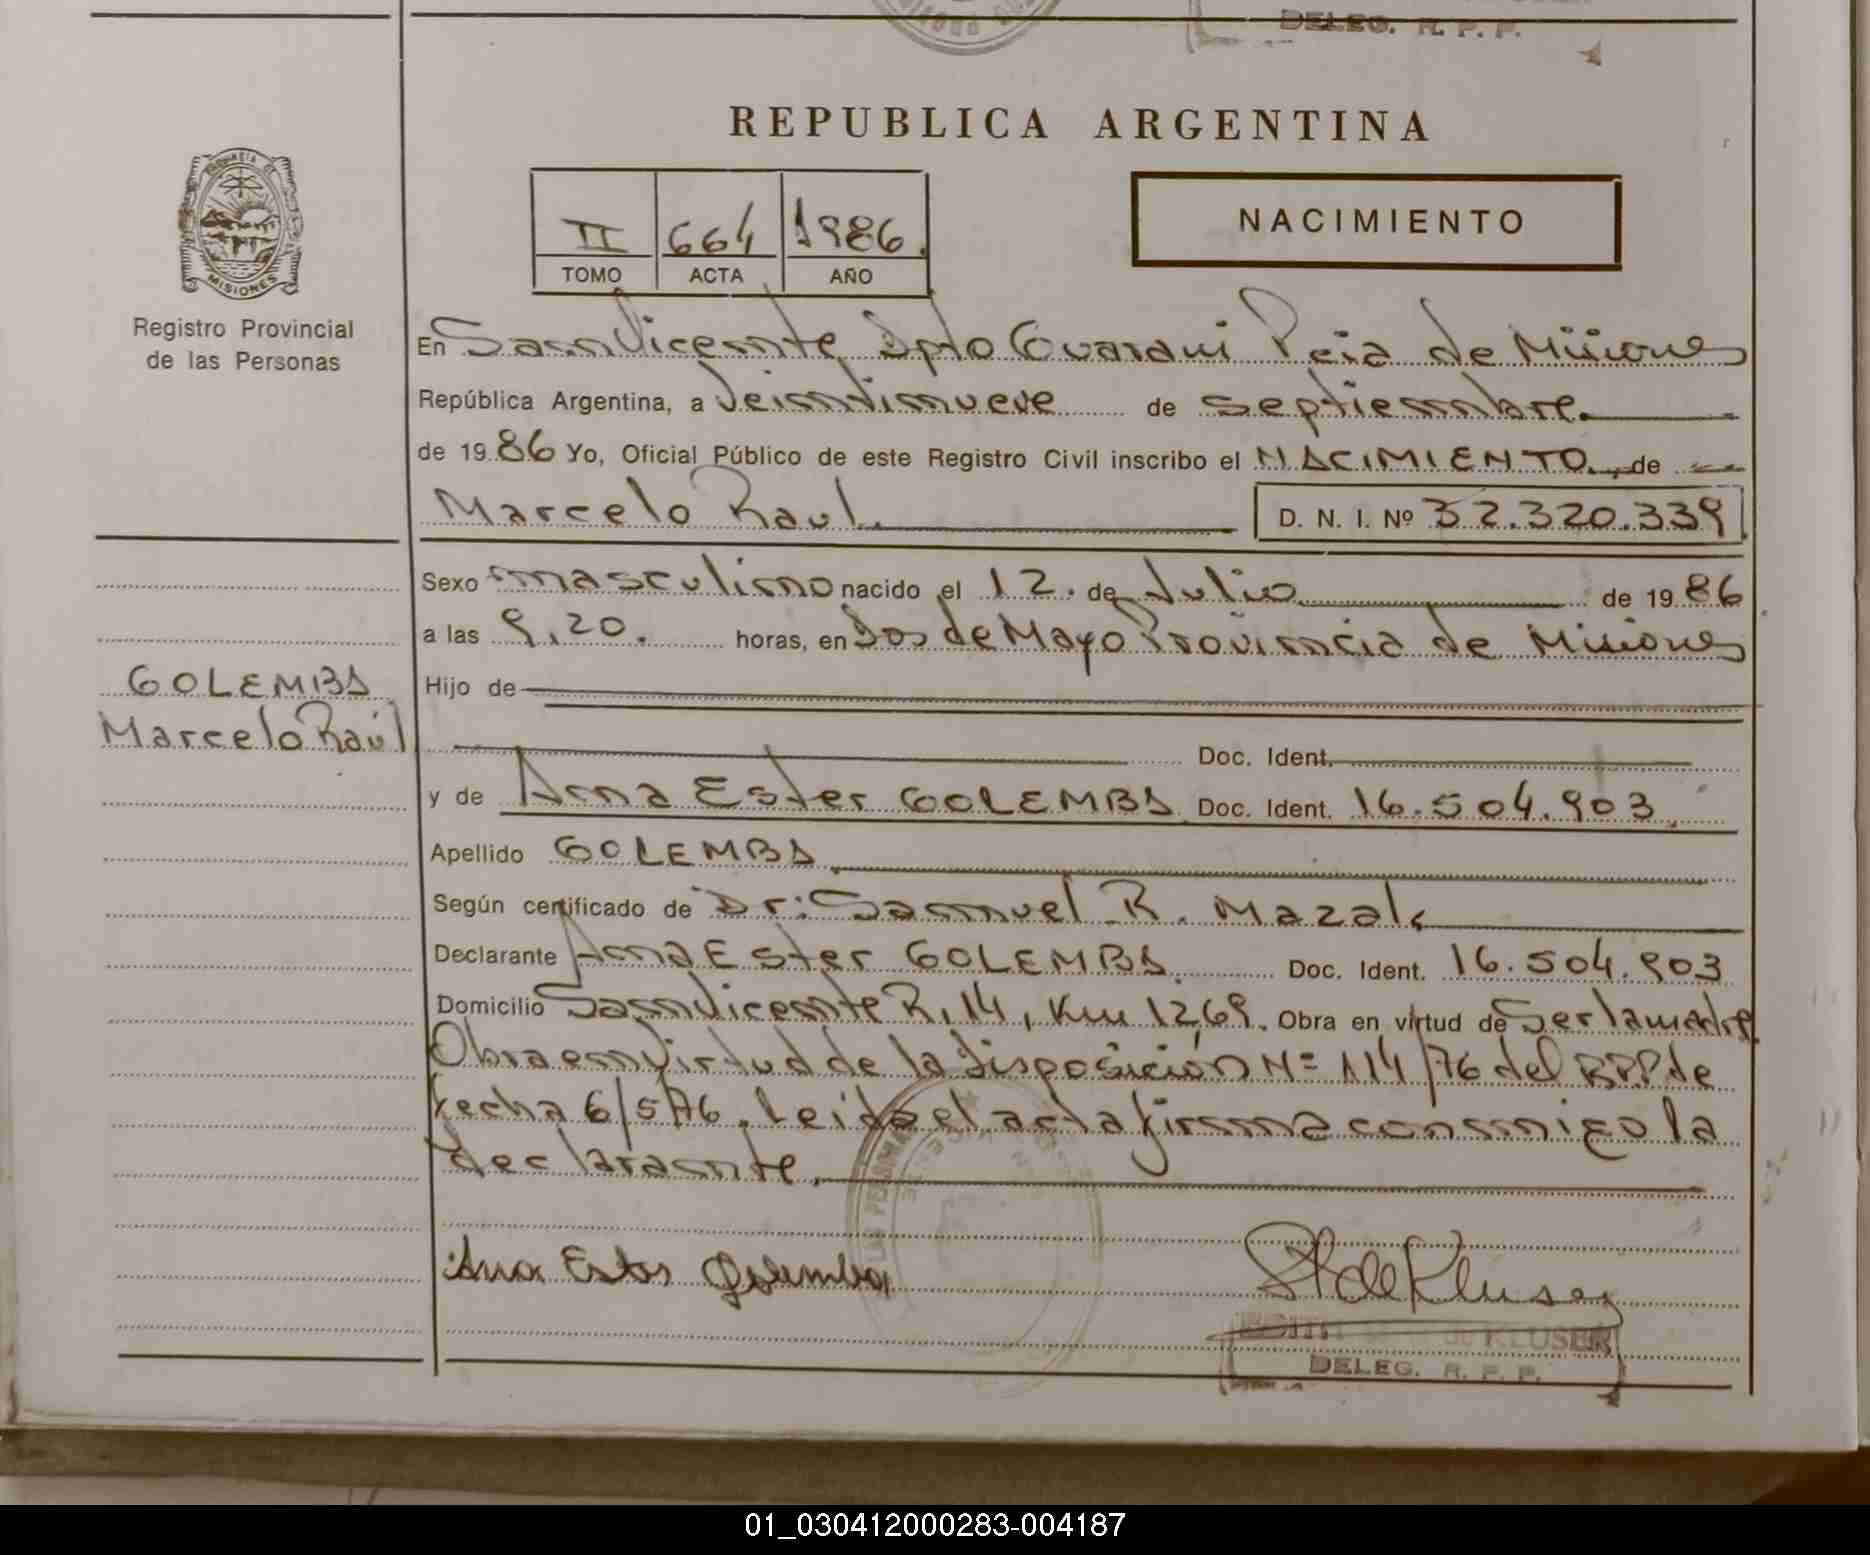 DELEG. R. P. P.
REPUBLICA ARGENTINA
II 664 1986.
TOMO ACTA AÑO
NACIMIENTO
PROVINCIA DE
MISIONES
Registro Provincial
de las Personas
En San Vicente Dpto Guaraní Pcia de Misiones
República Argentina, a Veintinueve de septiembre.
de 1986 Yo, Oficial Público de este Registro Civil inscribo el NACIMIENTO de
Marcelo Raul. D. N. I. Nº 32.320.339
Sexo masculino nacido el 12. de Julio de 1986
a las 9,20. horas, en Dos de Mayo Provincia de Misiones
GOLEMBA
Marcelo Raúl
Hijo de
Doc. Ident.
y de Ana Ester GOLEMBA Doc. Ident. 16.504.903
Apellido GOLEMBA
Según certificado de Dr: Samuel R. Mazal
Declarante Ana Ester GOLEMBA Doc. Ident. 16.504.903
Domicilio San Vicente R, 14, Km 1269. Obra en virtud de Ser la madre
Obra en virtud de la disposición Nº 114/76 del RPP de
fecha 6/5/76. Leida el acta firma conmigo la
declarante.
Ana Ester Golemba
de KLUSER
DELEG. R. P. P.
01_030412000283-004187